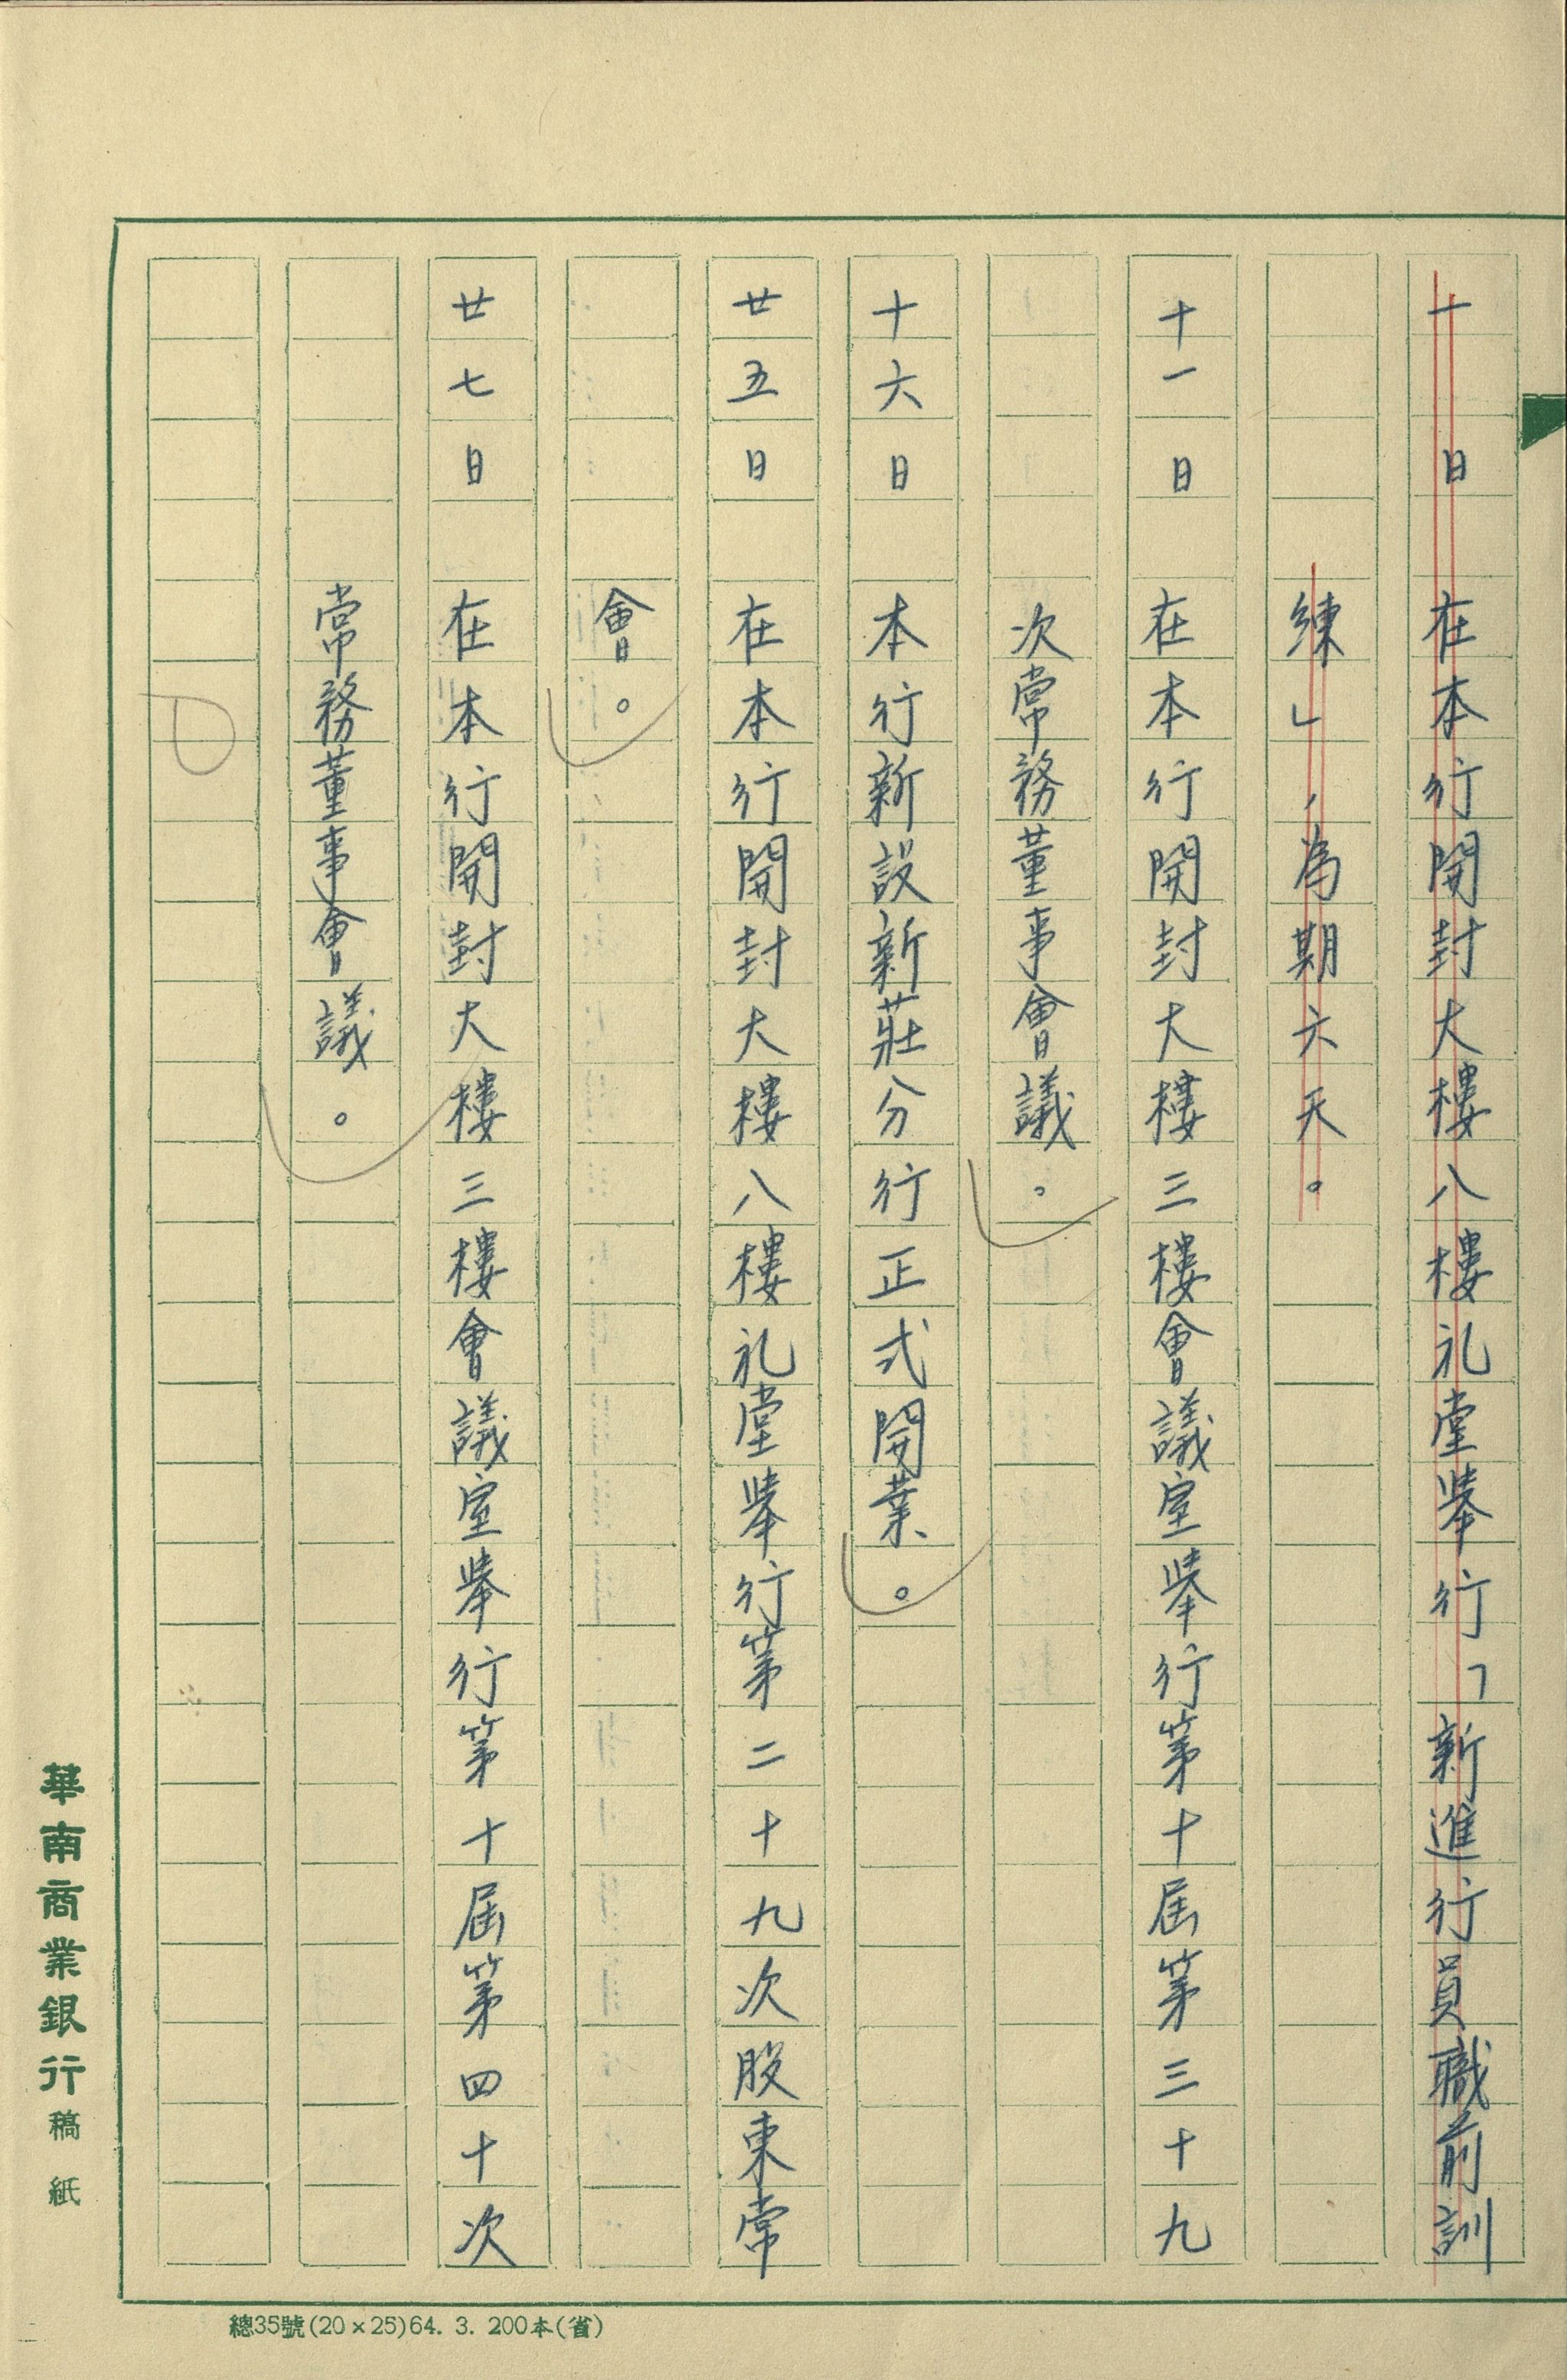 十日　在本行開封大樓八樓礼堂舉行「新進行員職前訓
練」，為期六天。
十一日　在本行開封大樓三樓會議室舉行第十屆第三十九
次常務董事會議。
十六日　本行新設新莊分行正式開業。
廿五日　在本行開封大樓八樓礼堂舉行第二十九次股東常
會。
廿七日　在本行開封大樓三樓會議室舉行第十屆第四十次
常務董事會議。
華南商業銀行稿紙
總35號(20×25)64. 3. 200本(省)